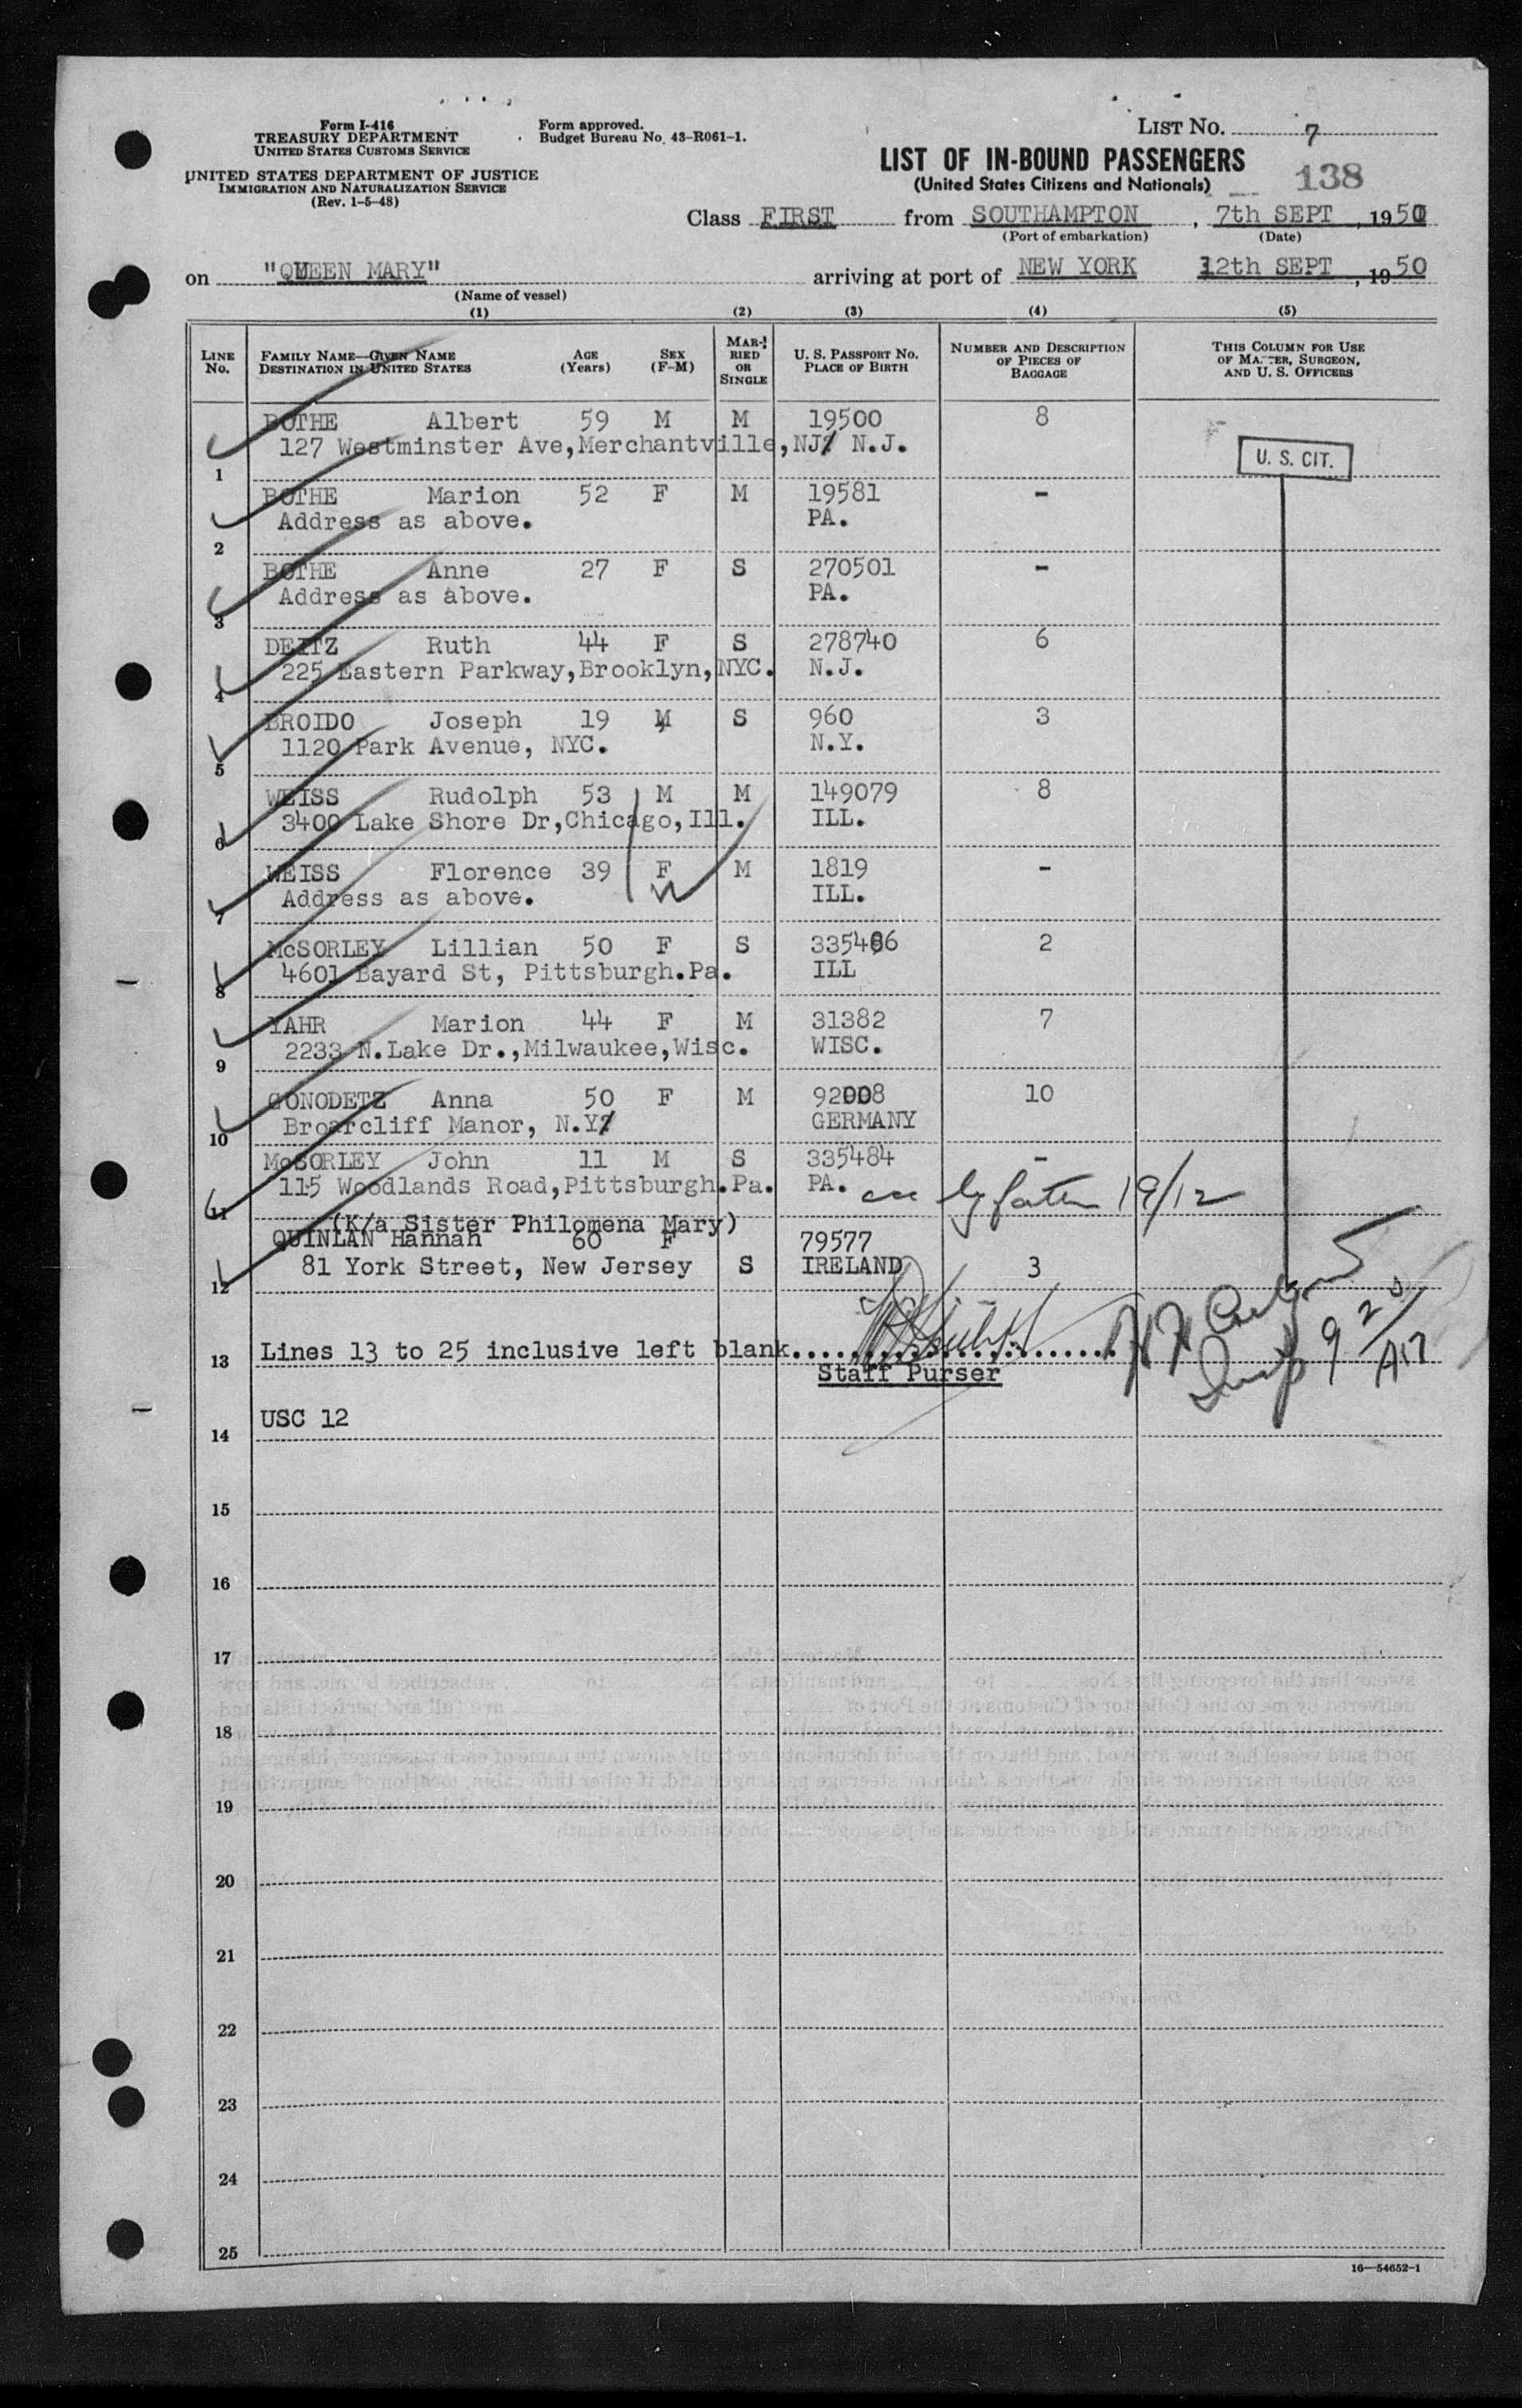 Form I-416
TREASURY DEPARTMENT
UNITED STATES CUSTOMS SERVICE
UNITED STATES DEPARTMENT OF JUSTICE
IMMIGRATION AND NATURALIZATION SERVICE
(Rev. 1-5-48)
Form approved.
Budget Bureau No. 43-R061-1.
LIST NO. 7
LIST OF IN-BOUND PASSENGERS
(United States Citizens and Nationals)
138
Class FIRST from SOUTHAMPTON, 7th SEPT, 1950
(Port of embarkation) (Date)
on "QUEEN MARY" arriving at port of NEW YORK 12th SEPT, 1950
(Name of vessel)
(1) (2) (3) (4) (5)
LINE NO. FAMILY NAME—GIVEN NAME DESTINATION IN UNITED STATES AGE (Years) SEX (F-M) MARRIED OR SINGLE U. S. PASSPORT NO. PLACE OF BIRTH NUMBER AND DESCRIPTION OF PIECES OF BAGGAGE THIS COLUMN FOR USE OF MASTER, SURGEON, AND U. S. OFFICERS
BOTHE Albert 59 M M 19500 8
127 Westminster Ave,Merchantville,NJ N.J.
U. S. CIT.
1
BOTHE Marion 52 F M 19581 -
Address as above. PA.
2
BOTHE Anne 27 F S 270501 -
Address as above. PA.
3
DEITZ Ruth 44 F S 278740 6
225 Eastern Parkway,Brooklyn,NYC. N.J.
4
BROIDO Joseph 19 M S 960 3
1120 Park Avenue, NYC. N.Y.
5
WEISS Rudolph 53 M M 149079 8
3400 Lake Shore Dr,Chicago,Ill. ILL.
6
WEISS Florence 39 F M 1819 -
Address as above. ILL.
7
McSORLEY Lillian 50 F S 335486 2
4601 Bayard St, Pittsburgh.Pa. ILL
8
YAHR Marion 44 F M 31382 7
2233 N.Lake Dr.,Milwaukee,Wisc. WISC.
9
GONODETZ Anna 50 F M 92008 10
Broarcliff Manor, N.Y GERMANY
10
McSORLEY John 11 M S 335484 -
115 Woodlands Road,Pittsburgh.Pa. PA.
19/12
11
(K/a Sister Philomena Mary)
QUINLAN Hannah 60 F 79577
81 York Street, New Jersey S IRELAND 3
12
13 Lines 13 to 25 inclusive left blank......................
Staff Purser
USC 12
14
15
16
17
18
19
20
21
22
23
24
25
16—54652-1